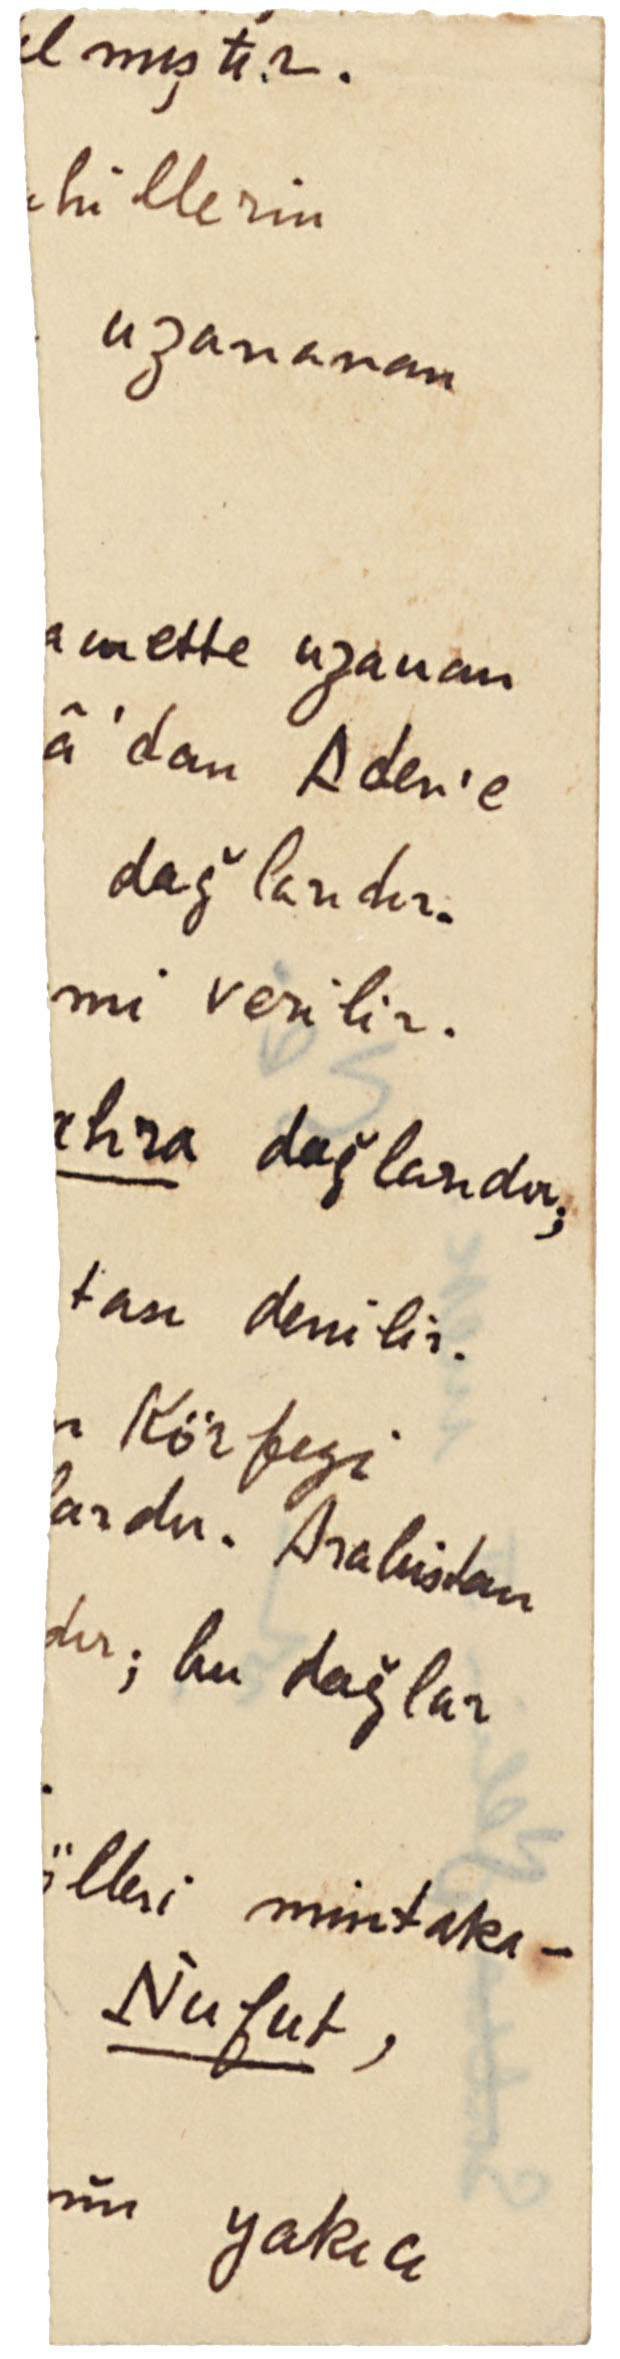 elmiştir.
ahillerin
uzananan
amette uzanan
â'dan Aden'e
dağlarıdır.
mi verilir.
ahra dağlarıdır;
tası denilir.
n Körfezi
lardır. Arabistan
dır; bu dağlar
ölleri mıntaka-
Nufut,
nün yakıcı